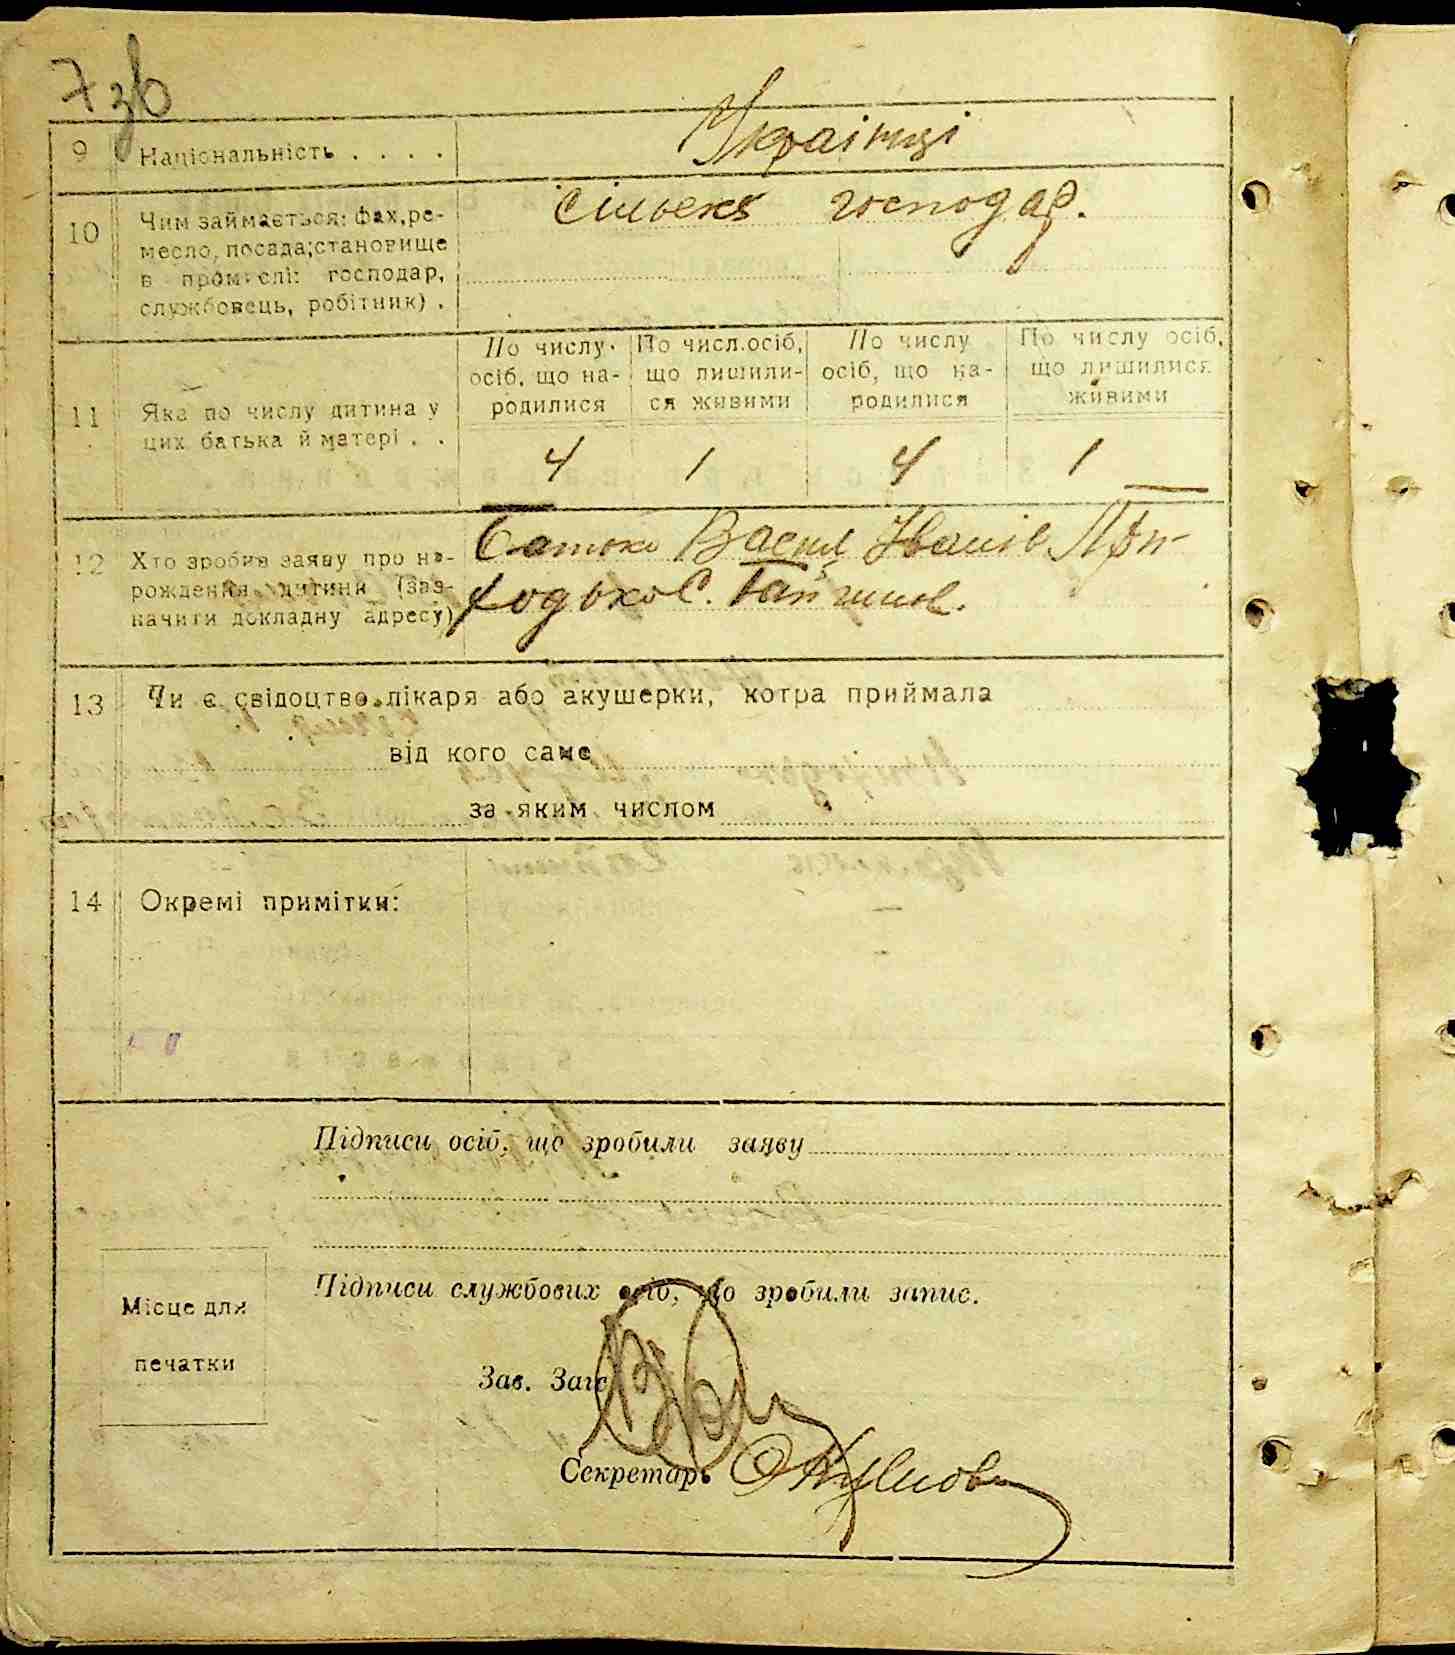 7 зв
9 Національність . . . . Українці
10 Чим займається: фах,ре- сільськ господар.
месло, посада;становище
в промислі: господар,
службовець, робітник) .
По числу По числ.осіб, По числу По числу осіб,
осіб, що на- що лишили- осіб, що на- що лишилися
родилися ся живими родилися живими
11 Яка по числу дитина у
цих батька й матері . .
4 1 4 1
12 Хто зробив заяву про на- Батько Васил Іванів При-
рождення дитини (заз- ходько С. Гайшин.
начити докладну адресу)
13 Чи є свідоцтво лікаря або акушерки, котра приймала
від кого саме
за яким числом
14 Окремі примітки:
Підписи осіб, що зробили заяву
Підписи службових осіб, що зробили запис.
Місце для
печатки
Зав. Заго
Секретарь